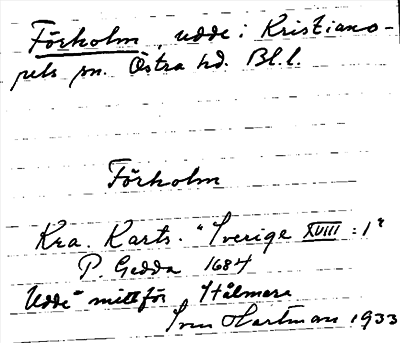 Förholm, udde i Kristiano-
pels sn. Östra hd. Bl.l.
Förholm
Kra. Karts. "Sverige XVIII:1"
P. Gedda 1684
Udde mitt för Stålmara
Sven Hartman 1933